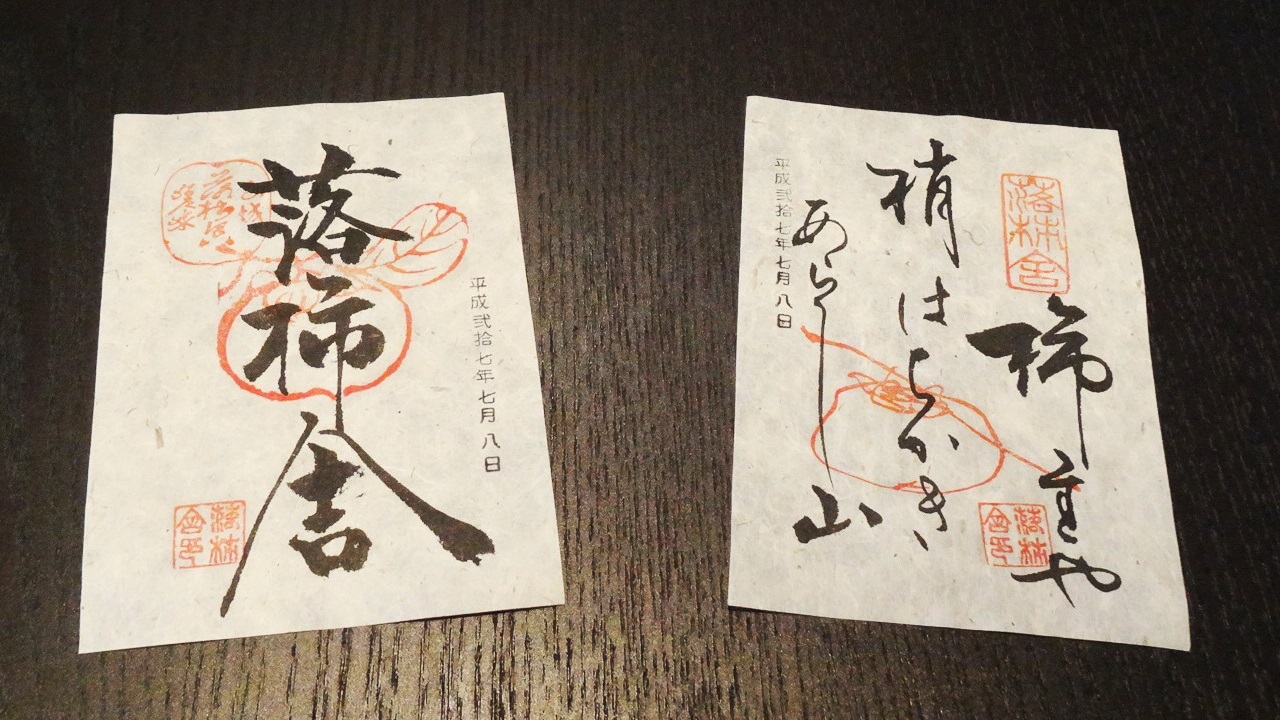 平成弐拾七年七月八日
落柿舎
落柿
舎印
落柿舎
柿主や
落柿
舎印
梢はちかき
あらし山
平成弐拾七年七月八日